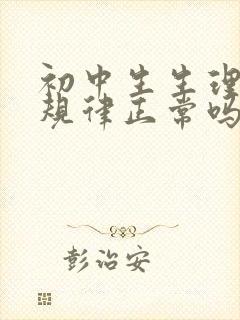 初中生生理
规律正常吗
彭治安